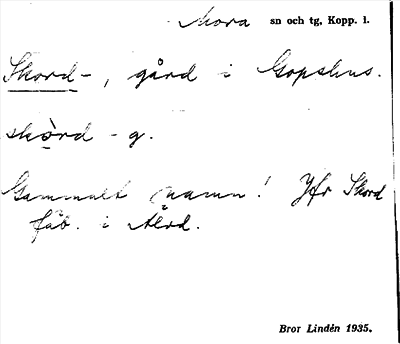 Mora sn och tg, Kopp. l.
Skord-, gård i Gopshus.
skò̱rd - g.
Gammalt namn! Jfr Skord
fäb. i Älvd.
Bror Lindén 1935.